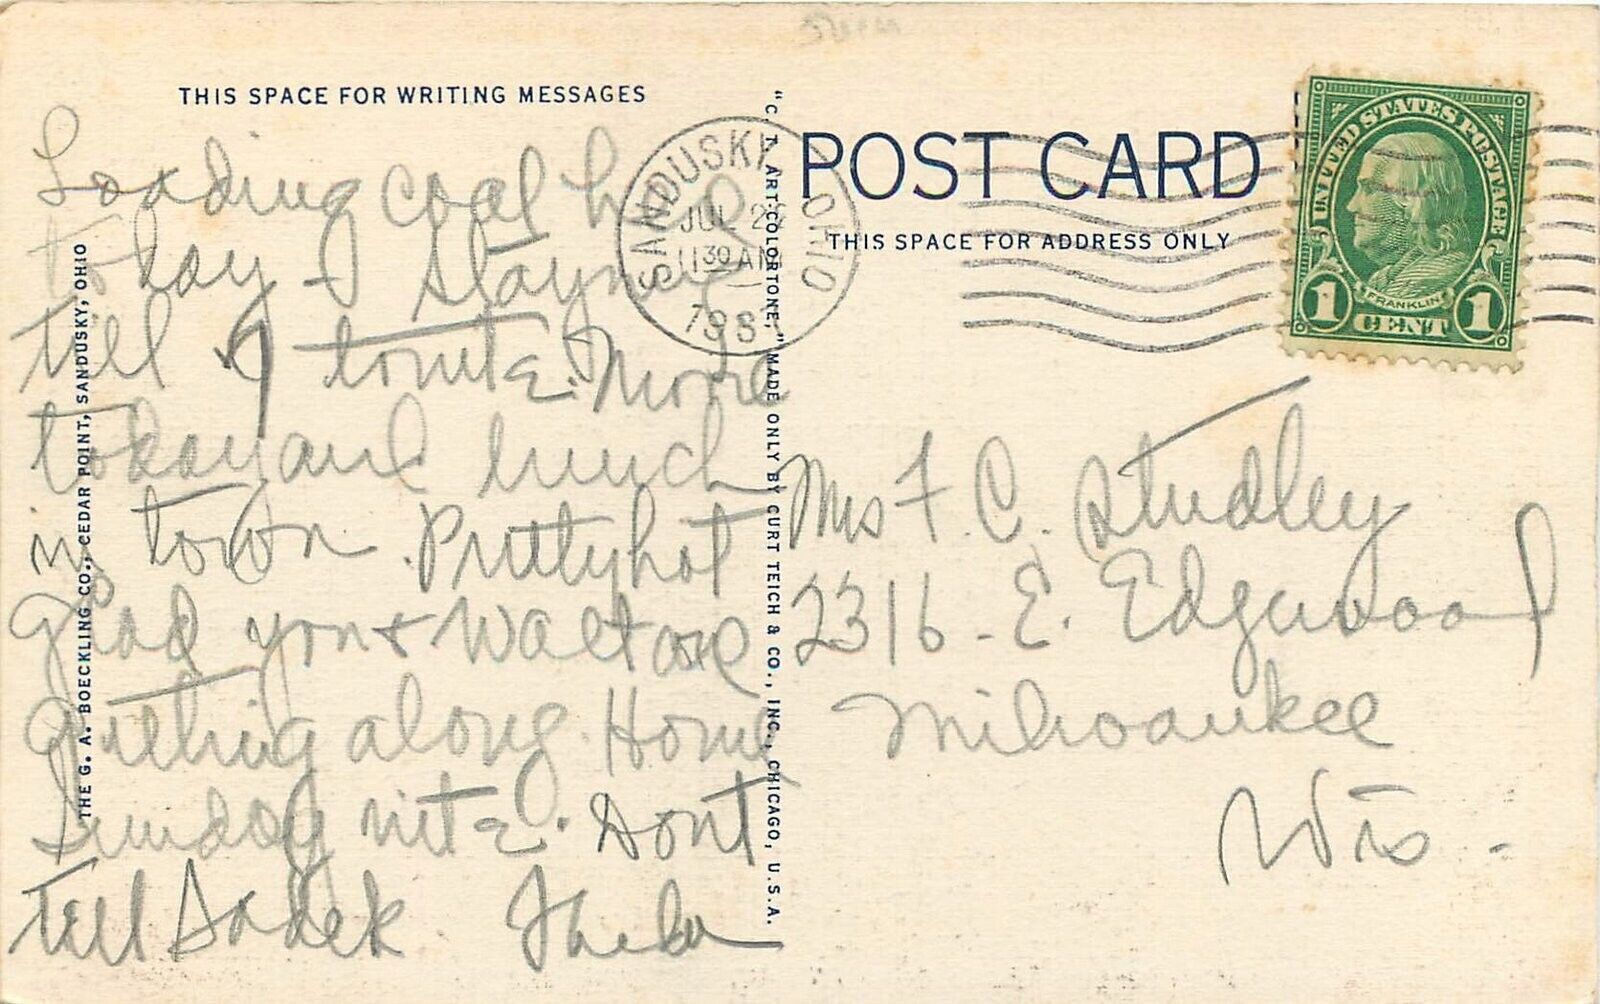 THIS SPACE FOR WRITING MESSAGES
Loading coal here
today - Staying
till 9 tonite. Movie
today and lunch
in town. Prettyhot
Glad you + Walt are
getting along. Home
Sunday nite. Dont
tell Sadek Theka
THE G. A. BOECKLING CO., CEDAR POINT, SANDUSKY, OHIO
"C. T. ART-COLORTONE," MADE ONLY BY CURT TEICH & CO., INC., CHICAGO, U.S.A.
SANDUSKY OHIO
JUL 26
11 30 AM
193
POST CARD
THIS SPACE FOR ADDRESS ONLY
UNITED STATES POSTAGE
FRANKLIN
1 CENT 1
Mrs F. C. Studley
2316 - E. Edgewood
Milwaukee
Wis -